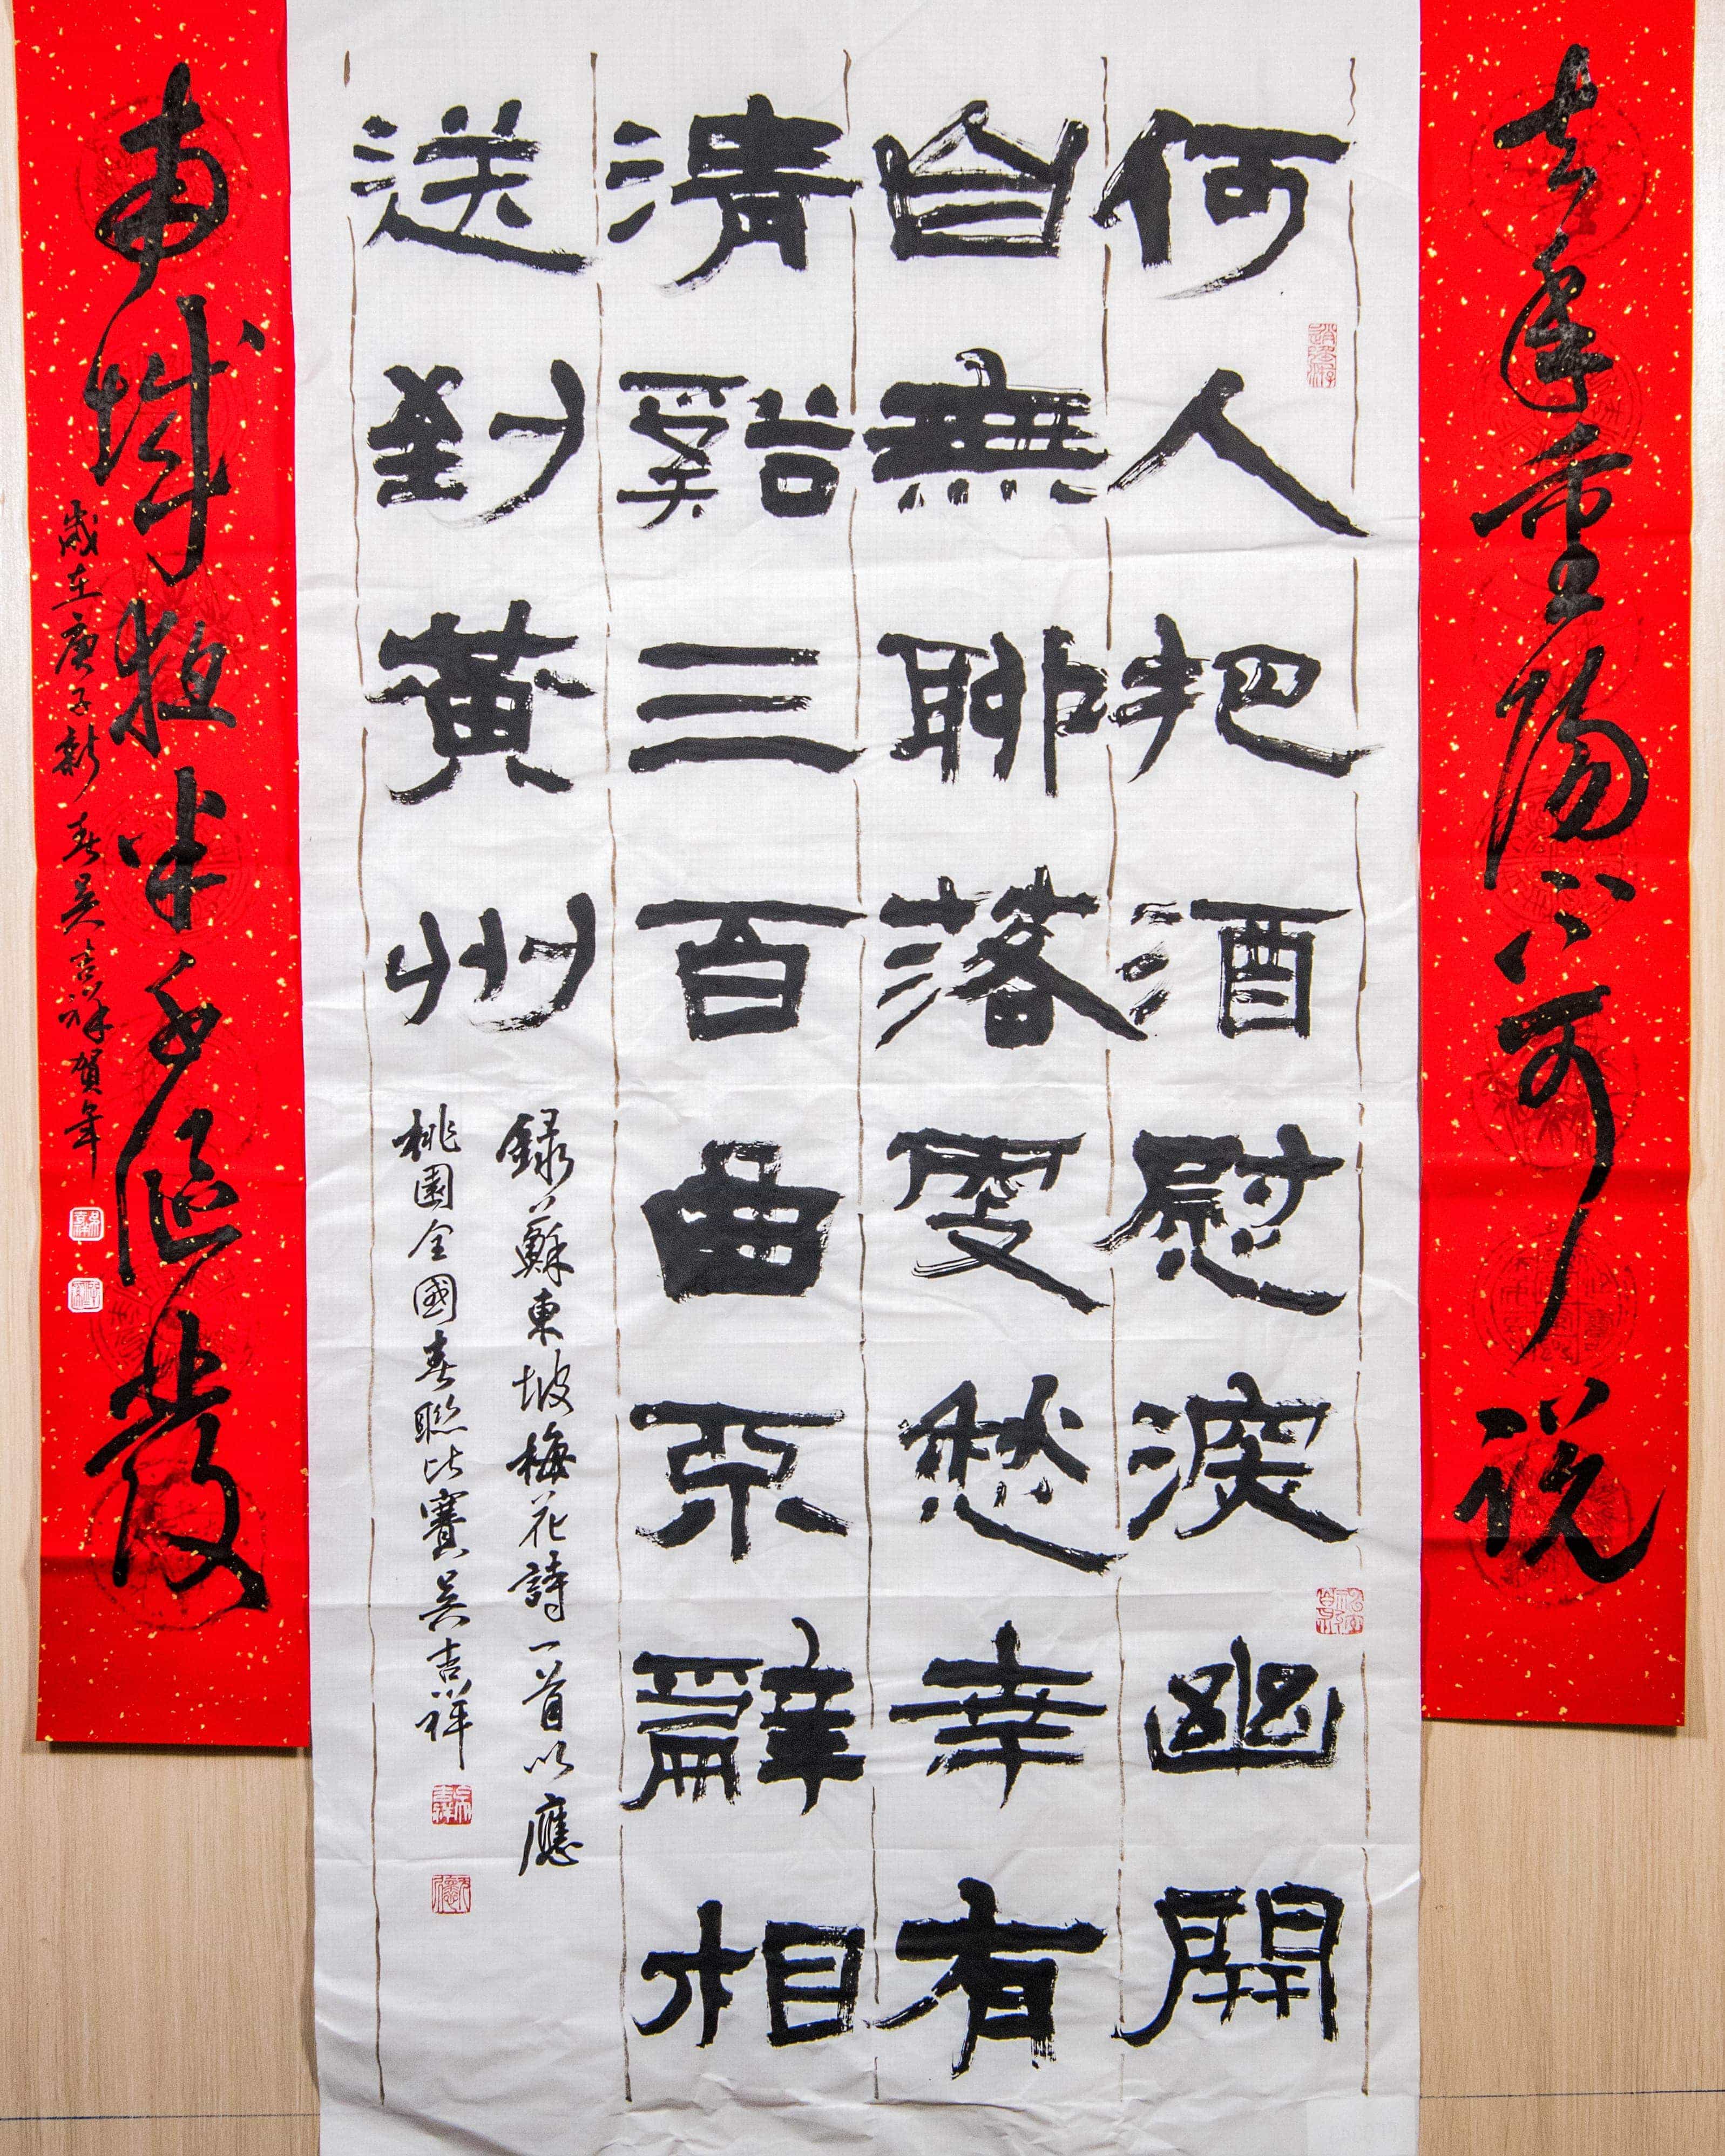 去年重陽不可說
何人把酒慰深幽開
自無聊落更愁幸有
清谿三百曲不辭相
送到黃州
錄蘇東坡梅花詩一首以應
桃園全國春聯比賽吳吉祥
南城夜半千漚發
歲在庚子新春吳吉祥賀年